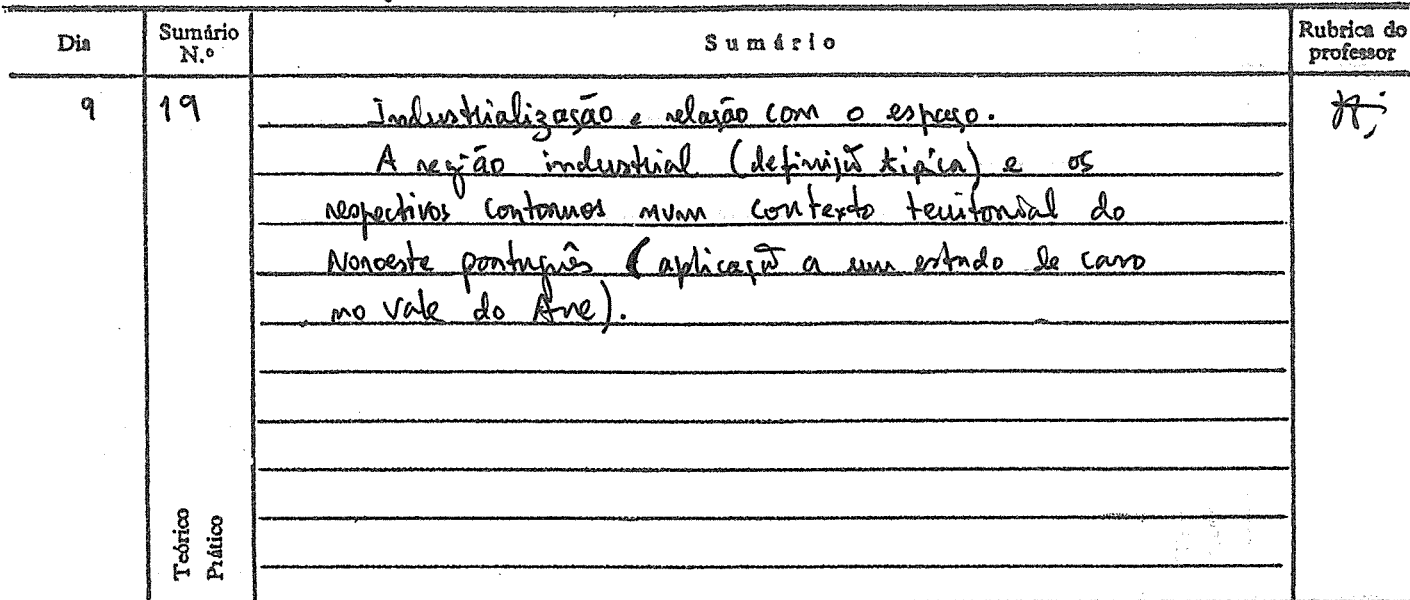 Dia Sumário N.º Sumário Rubrica do professor
9 19 Industrialização e relação com o espaço.
A região industrial (definição típica) e os
respectivos contornos num contexto territorial do
Noroeste português (aplicação a um estudo de caso
no Vale do Ave).
Teórico
Prático